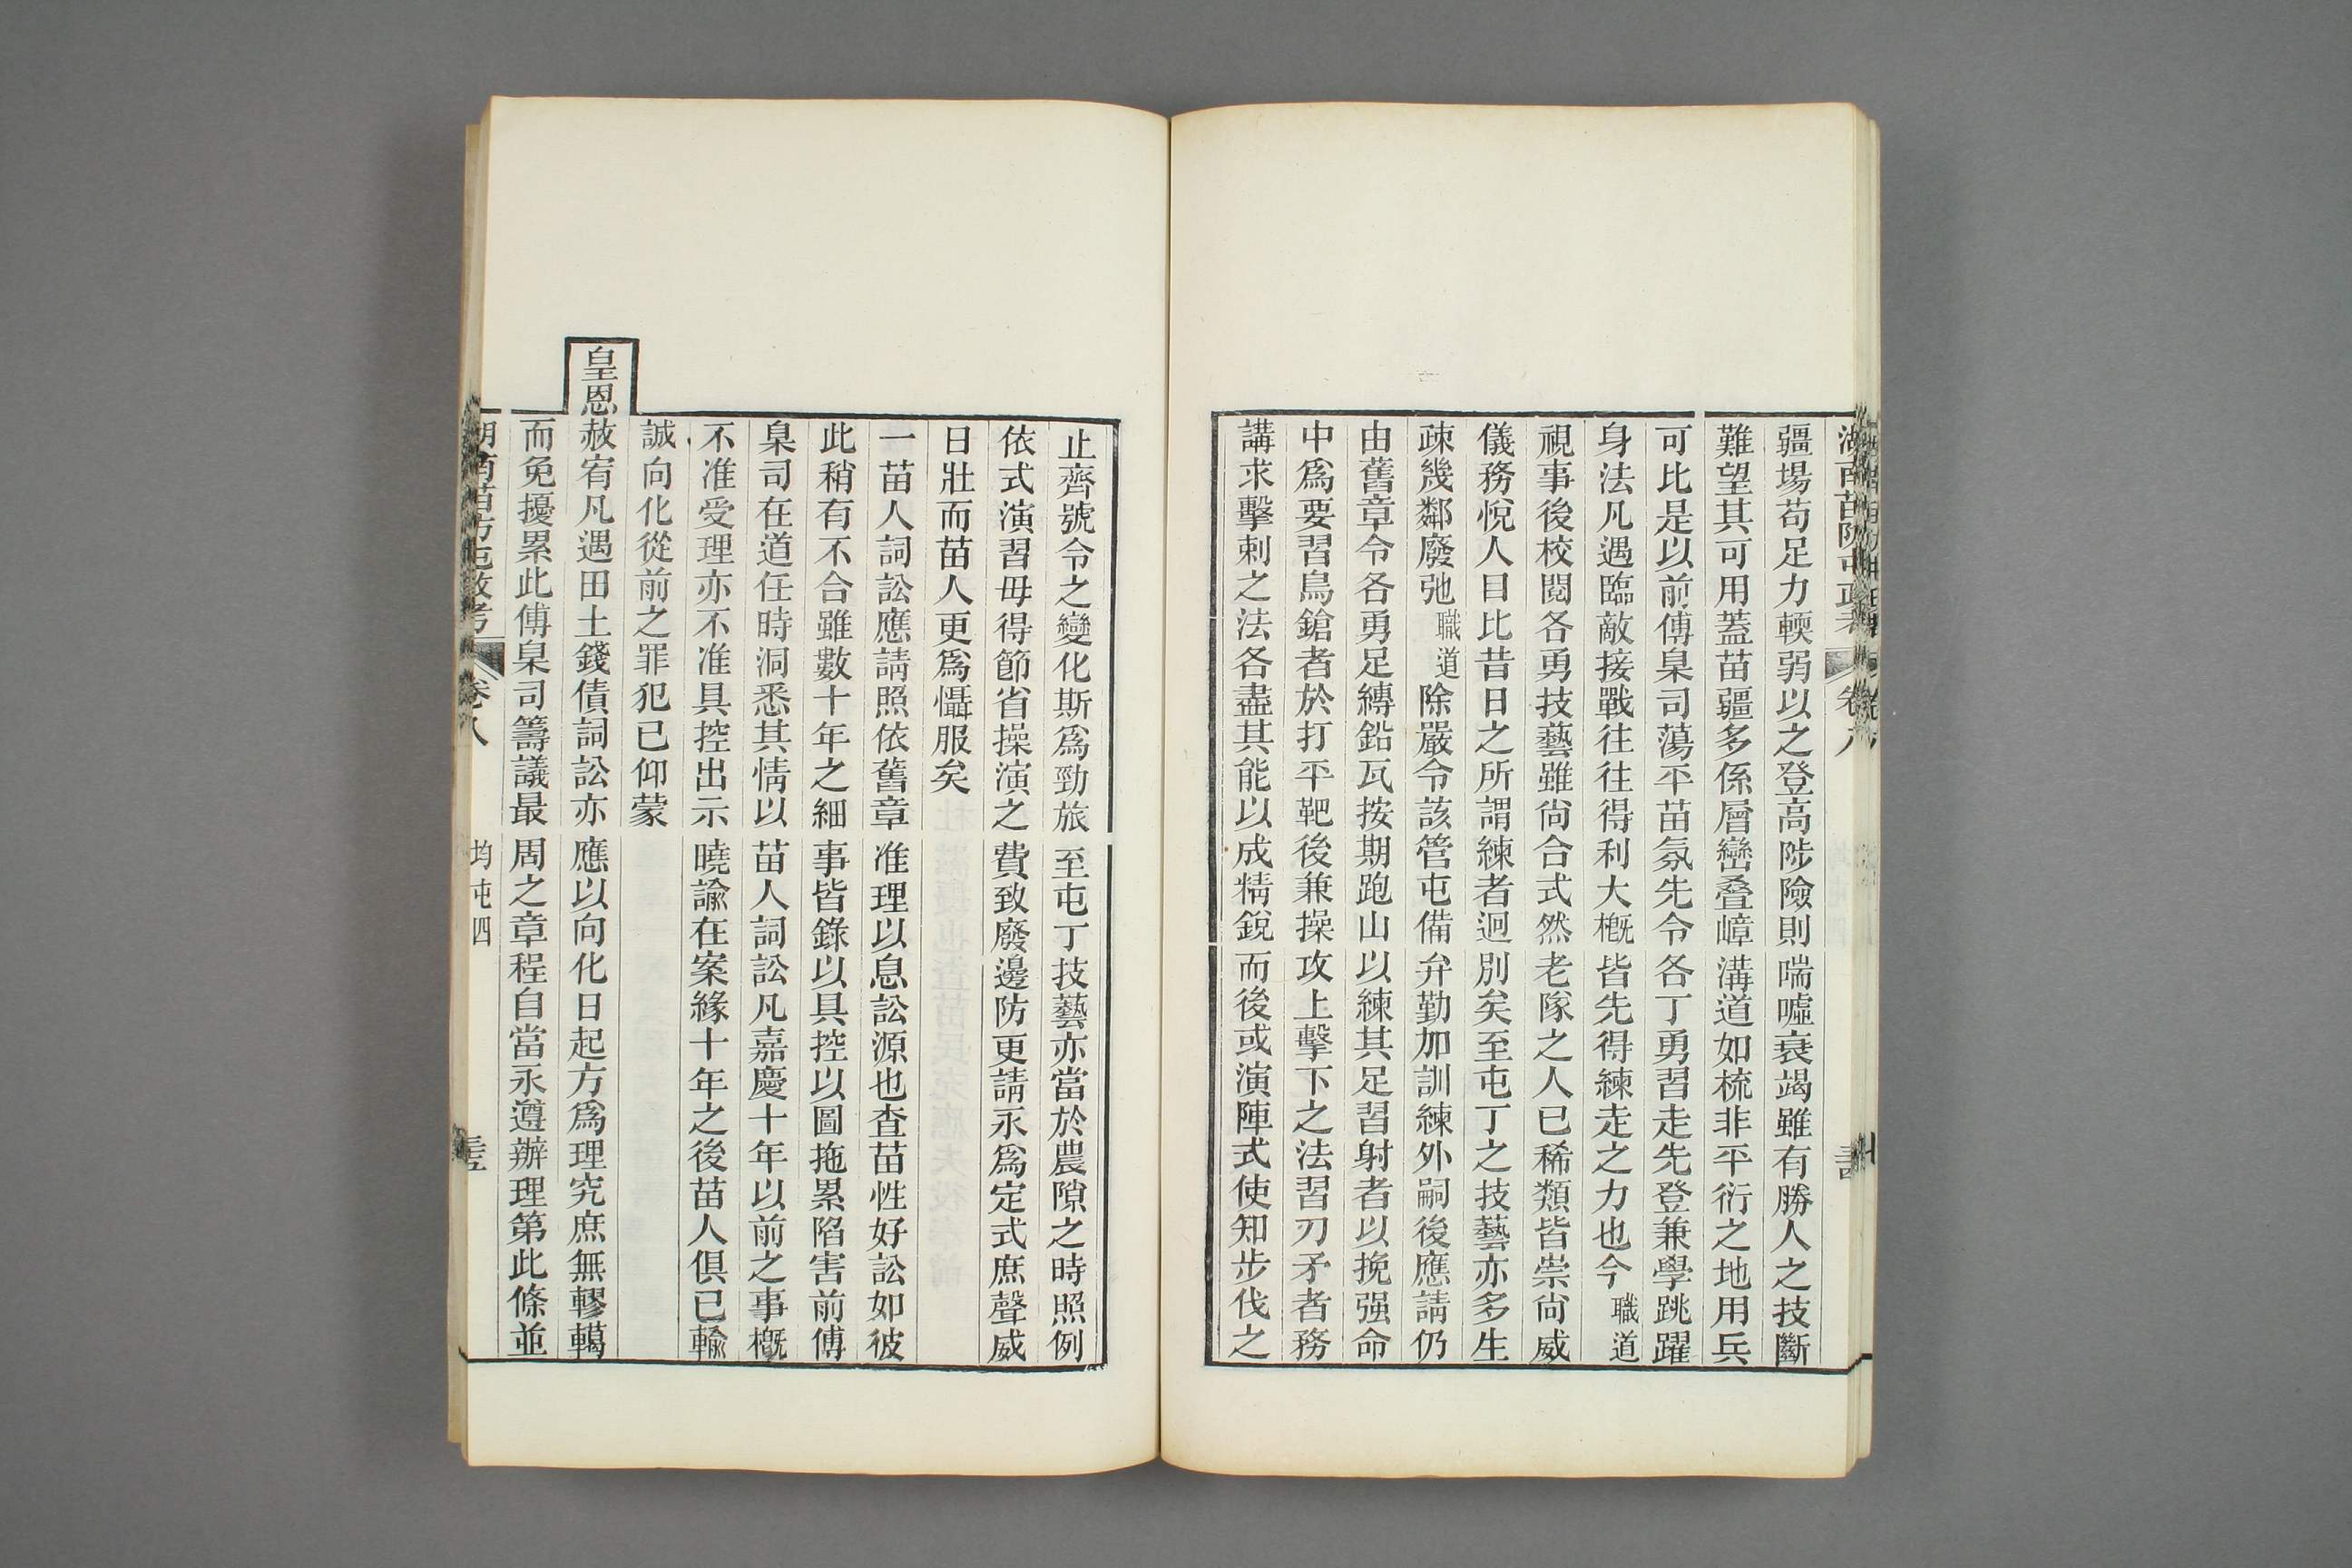 疆場苟足力輭弱以之登高陟險則喘噓衰竭雖有勝人之技斷
難望其可用蓋苗疆多係層巒叠嶂溝道如梳非平衍之地用兵
可比是以前傅臬司蕩平苗氛先令各丁勇習走先登兼學跳躍
身法凡遇臨敵接戰往往得利大概皆先得練走之力也今職道
視事後校閱各勇技藝雖尙合式然老隊之人已稀類皆崇尙威
儀務悅人目比昔日之所謂練者迥別矣至屯丁之技藝亦多生
疎幾鄰廢弛職道除嚴令該管屯備弁勤加訓練外嗣後應請仍
由舊章令各勇足縛鉛瓦按期跑山以練其足習射者以挽强命
中爲要習鳥鎗者於打平靶後兼操攻上擊下之法習刃矛者務
講求擊刺之法各盡其能以成精銳而後或演陣式使知步伐之
止齊號令之變化斯爲勁旅至屯丁技藝亦當於農隙之時照例
依式演習毋得節省操演之費致廢邊防更請永爲定式庶聲威
日壯而苗人更爲懾服矣
一苗人詞訟應請照依舊章准理以息訟源也查苗性好訟如彼
此稍有不合雖數十年之細事皆錄以具控以圖拖累陷害前傅
臬司在道任時洞悉其情以苗人詞訟凡嘉慶十年以前之事槪
不准受理亦不准具控出示曉諭在案緣十年之後苗人俱已輸
誠向化從前之罪犯已仰蒙
皇恩赦宥凡遇田土錢債詞訟亦應以向化日起方爲理究庶無轇轕
而免擾累此傅臬司籌議最周之章程自當永遵辦理第此條並
湖南苗防屯政考 卷八 均屯四 三五